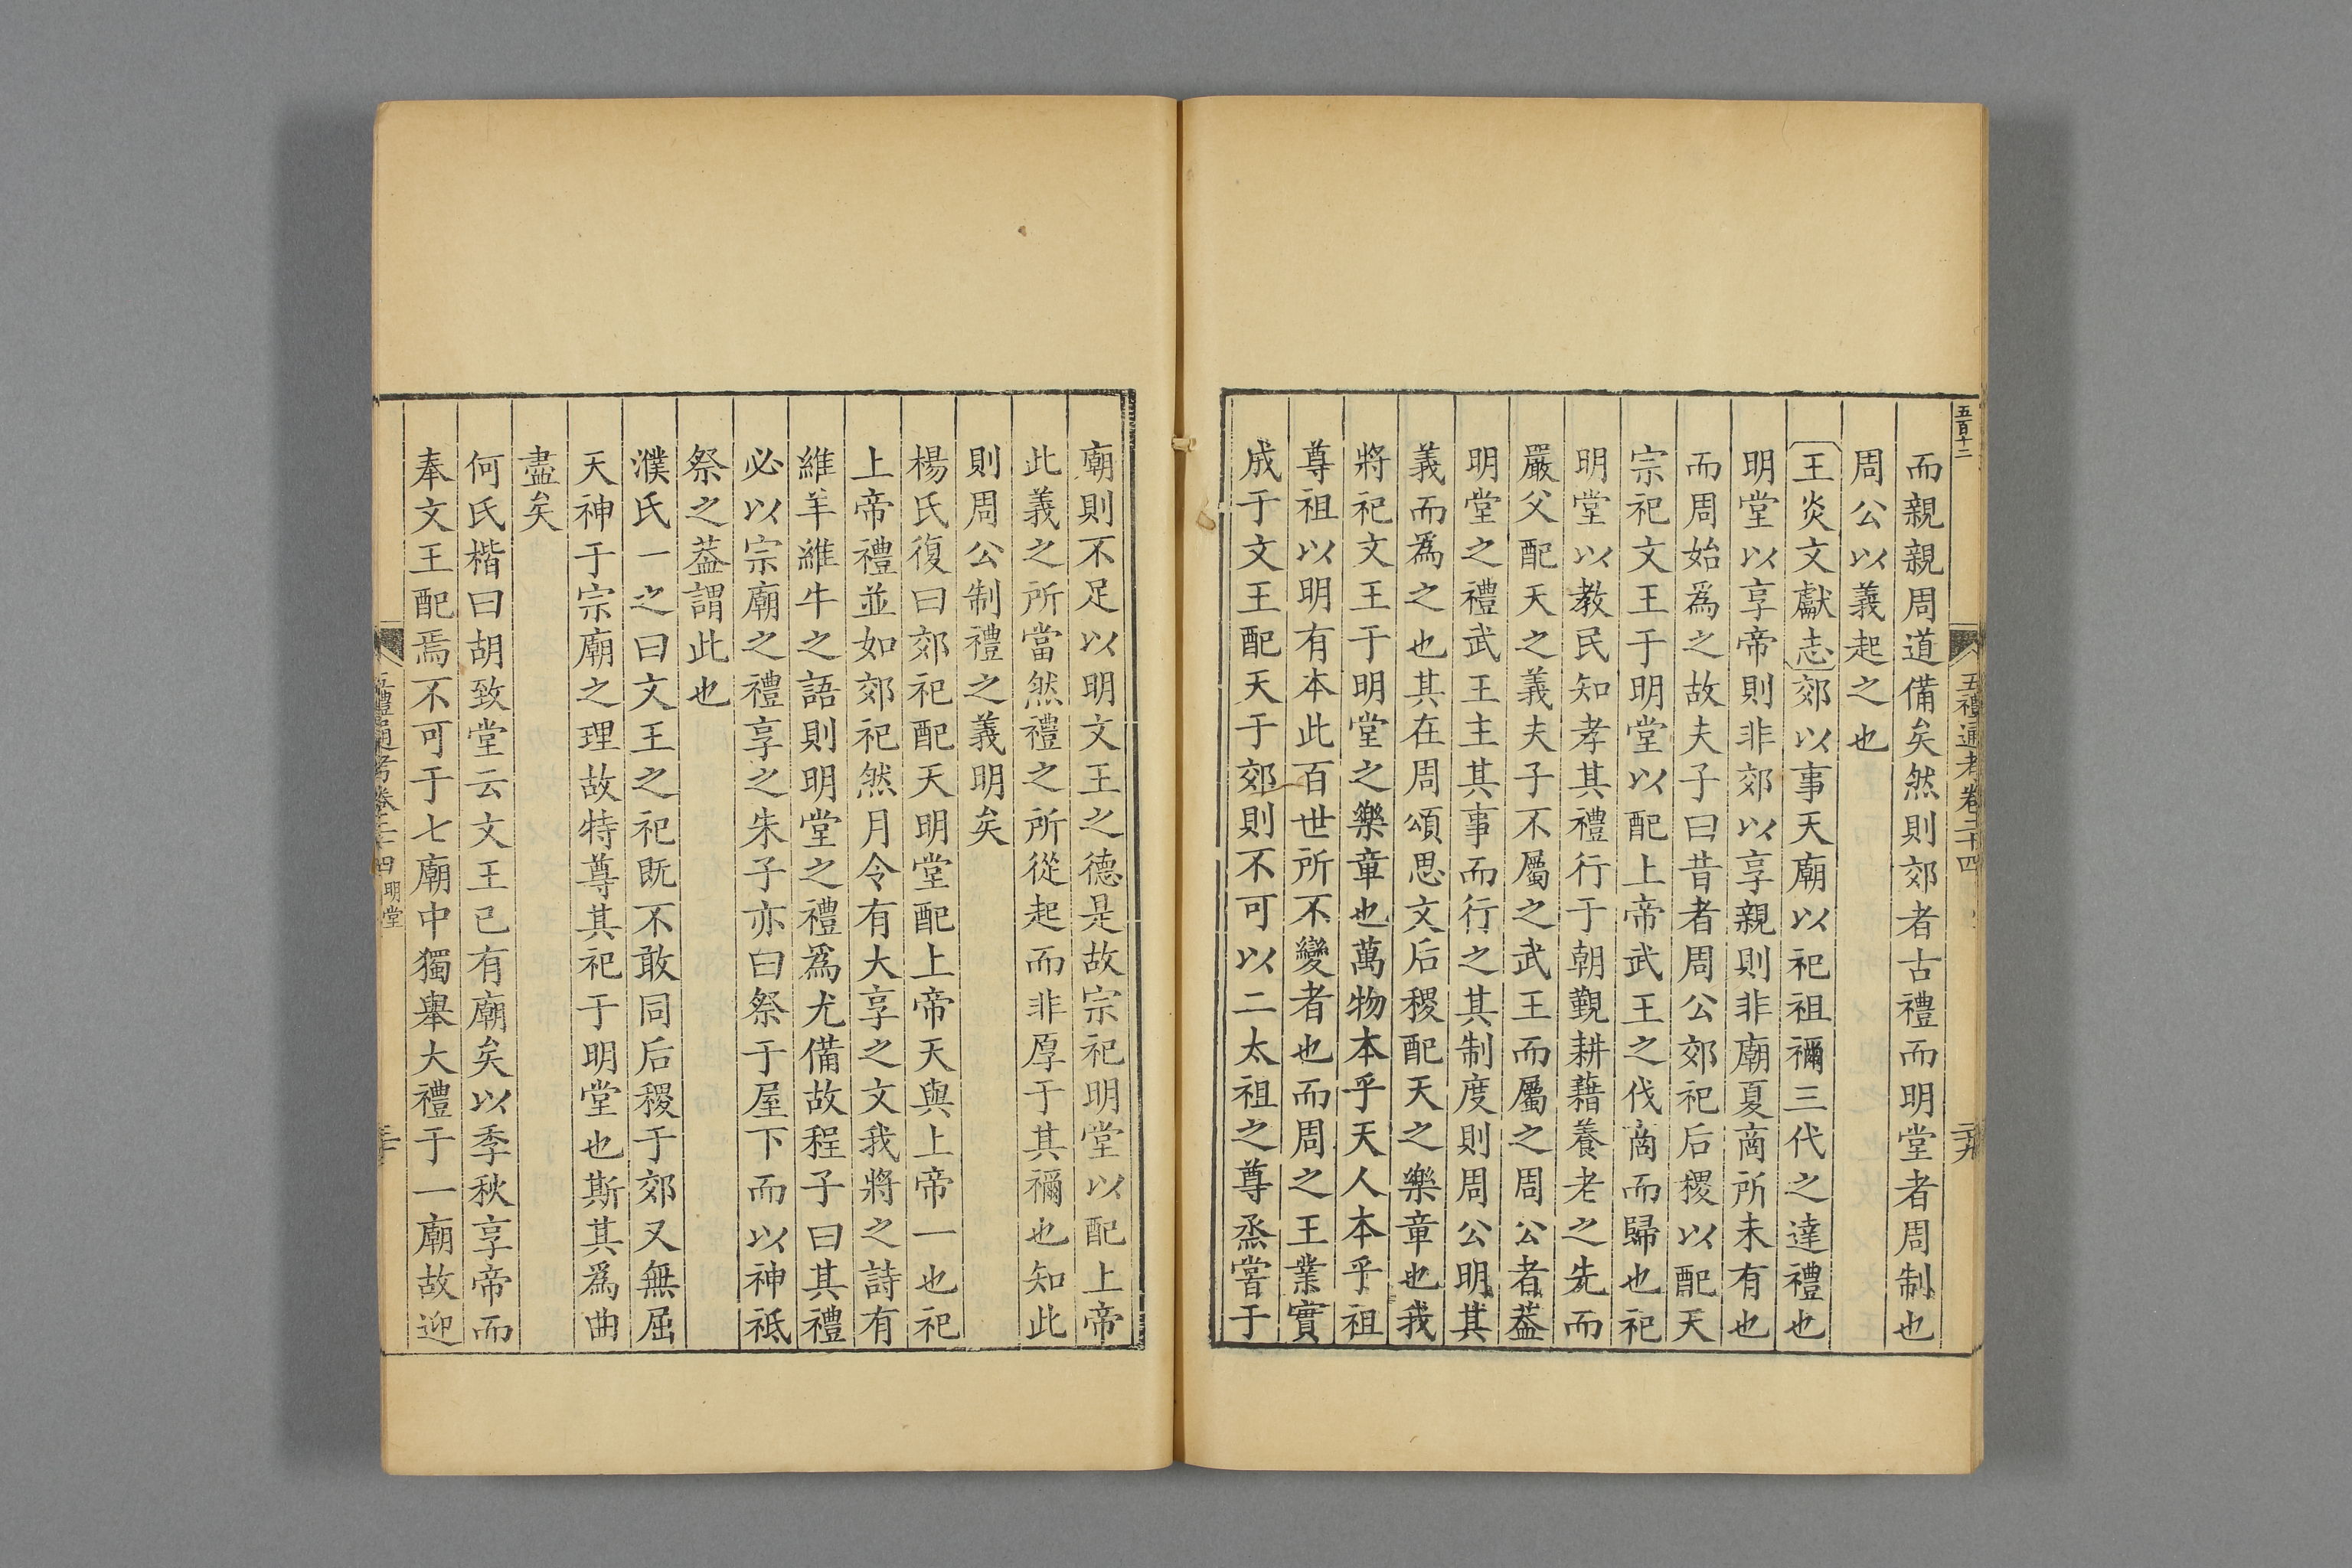 五百十二
五禮通考卷二十四
二十九
而親親周道備矣然則郊者古禮而明堂者周制也
周公以義起之也
王炎文獻志郊以事天廟以祀祖禰三代之達禮也
明堂以享帝則非郊以享親則非廟夏商所未有也
而周始爲之故夫子曰昔者周公郊祀后稷以配天
宗祀文王于明堂以配上帝武王之伐商而歸也祀
明堂以教民知孝其禮行于朝覲耕藉養老之先而
嚴父配天之義夫子不屬之武王而屬之周公者葢
明堂之禮武王主其事而行之其制度則周公明其
義而爲之也其在周頌思文后稷配天之樂章也我
將祀文王于明堂之樂章也萬物本乎天人本乎祖
尊祖以明有本此百世所不變者也而周之王業實
成于文王配天于郊則不可以二太祖之尊烝嘗于
廟則不足以明文王之德是故宗祀明堂以配上帝
此義之所當然禮之所從起而非厚于其禰也知此
則周公制禮之義明矣
楊氏復曰郊祀配天明堂配上帝天與上帝一也祀
上帝禮並如郊祀然月令有大享之文我將之詩有
維羊維牛之語則明堂之禮爲尤備故程子曰其禮
必以宗廟之禮享之朱子亦曰祭于屋下而以神祗
祭之葢謂此也
濮氏一之曰文王之祀既不敢同后稷于郊又無屈
天神于宗廟之理故特尊其祀于明堂也斯其爲曲
盡矣
何氏楷曰胡致堂云文王已有廟矣以季秋享帝而
奉文王配焉不可于七廟中獨舉大禮于一廟故迎
禮通考卷二十四 明堂
三十